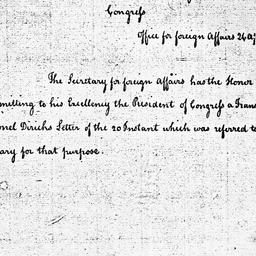 Congress
Office for foreign Affairs 24
The Secretary for foreign Affairs has the Honor
mitting to his Excellency the President of Congress a Trans
onel Dirichs Letter of the 20 Instant which was referred to
ary for that purpose.